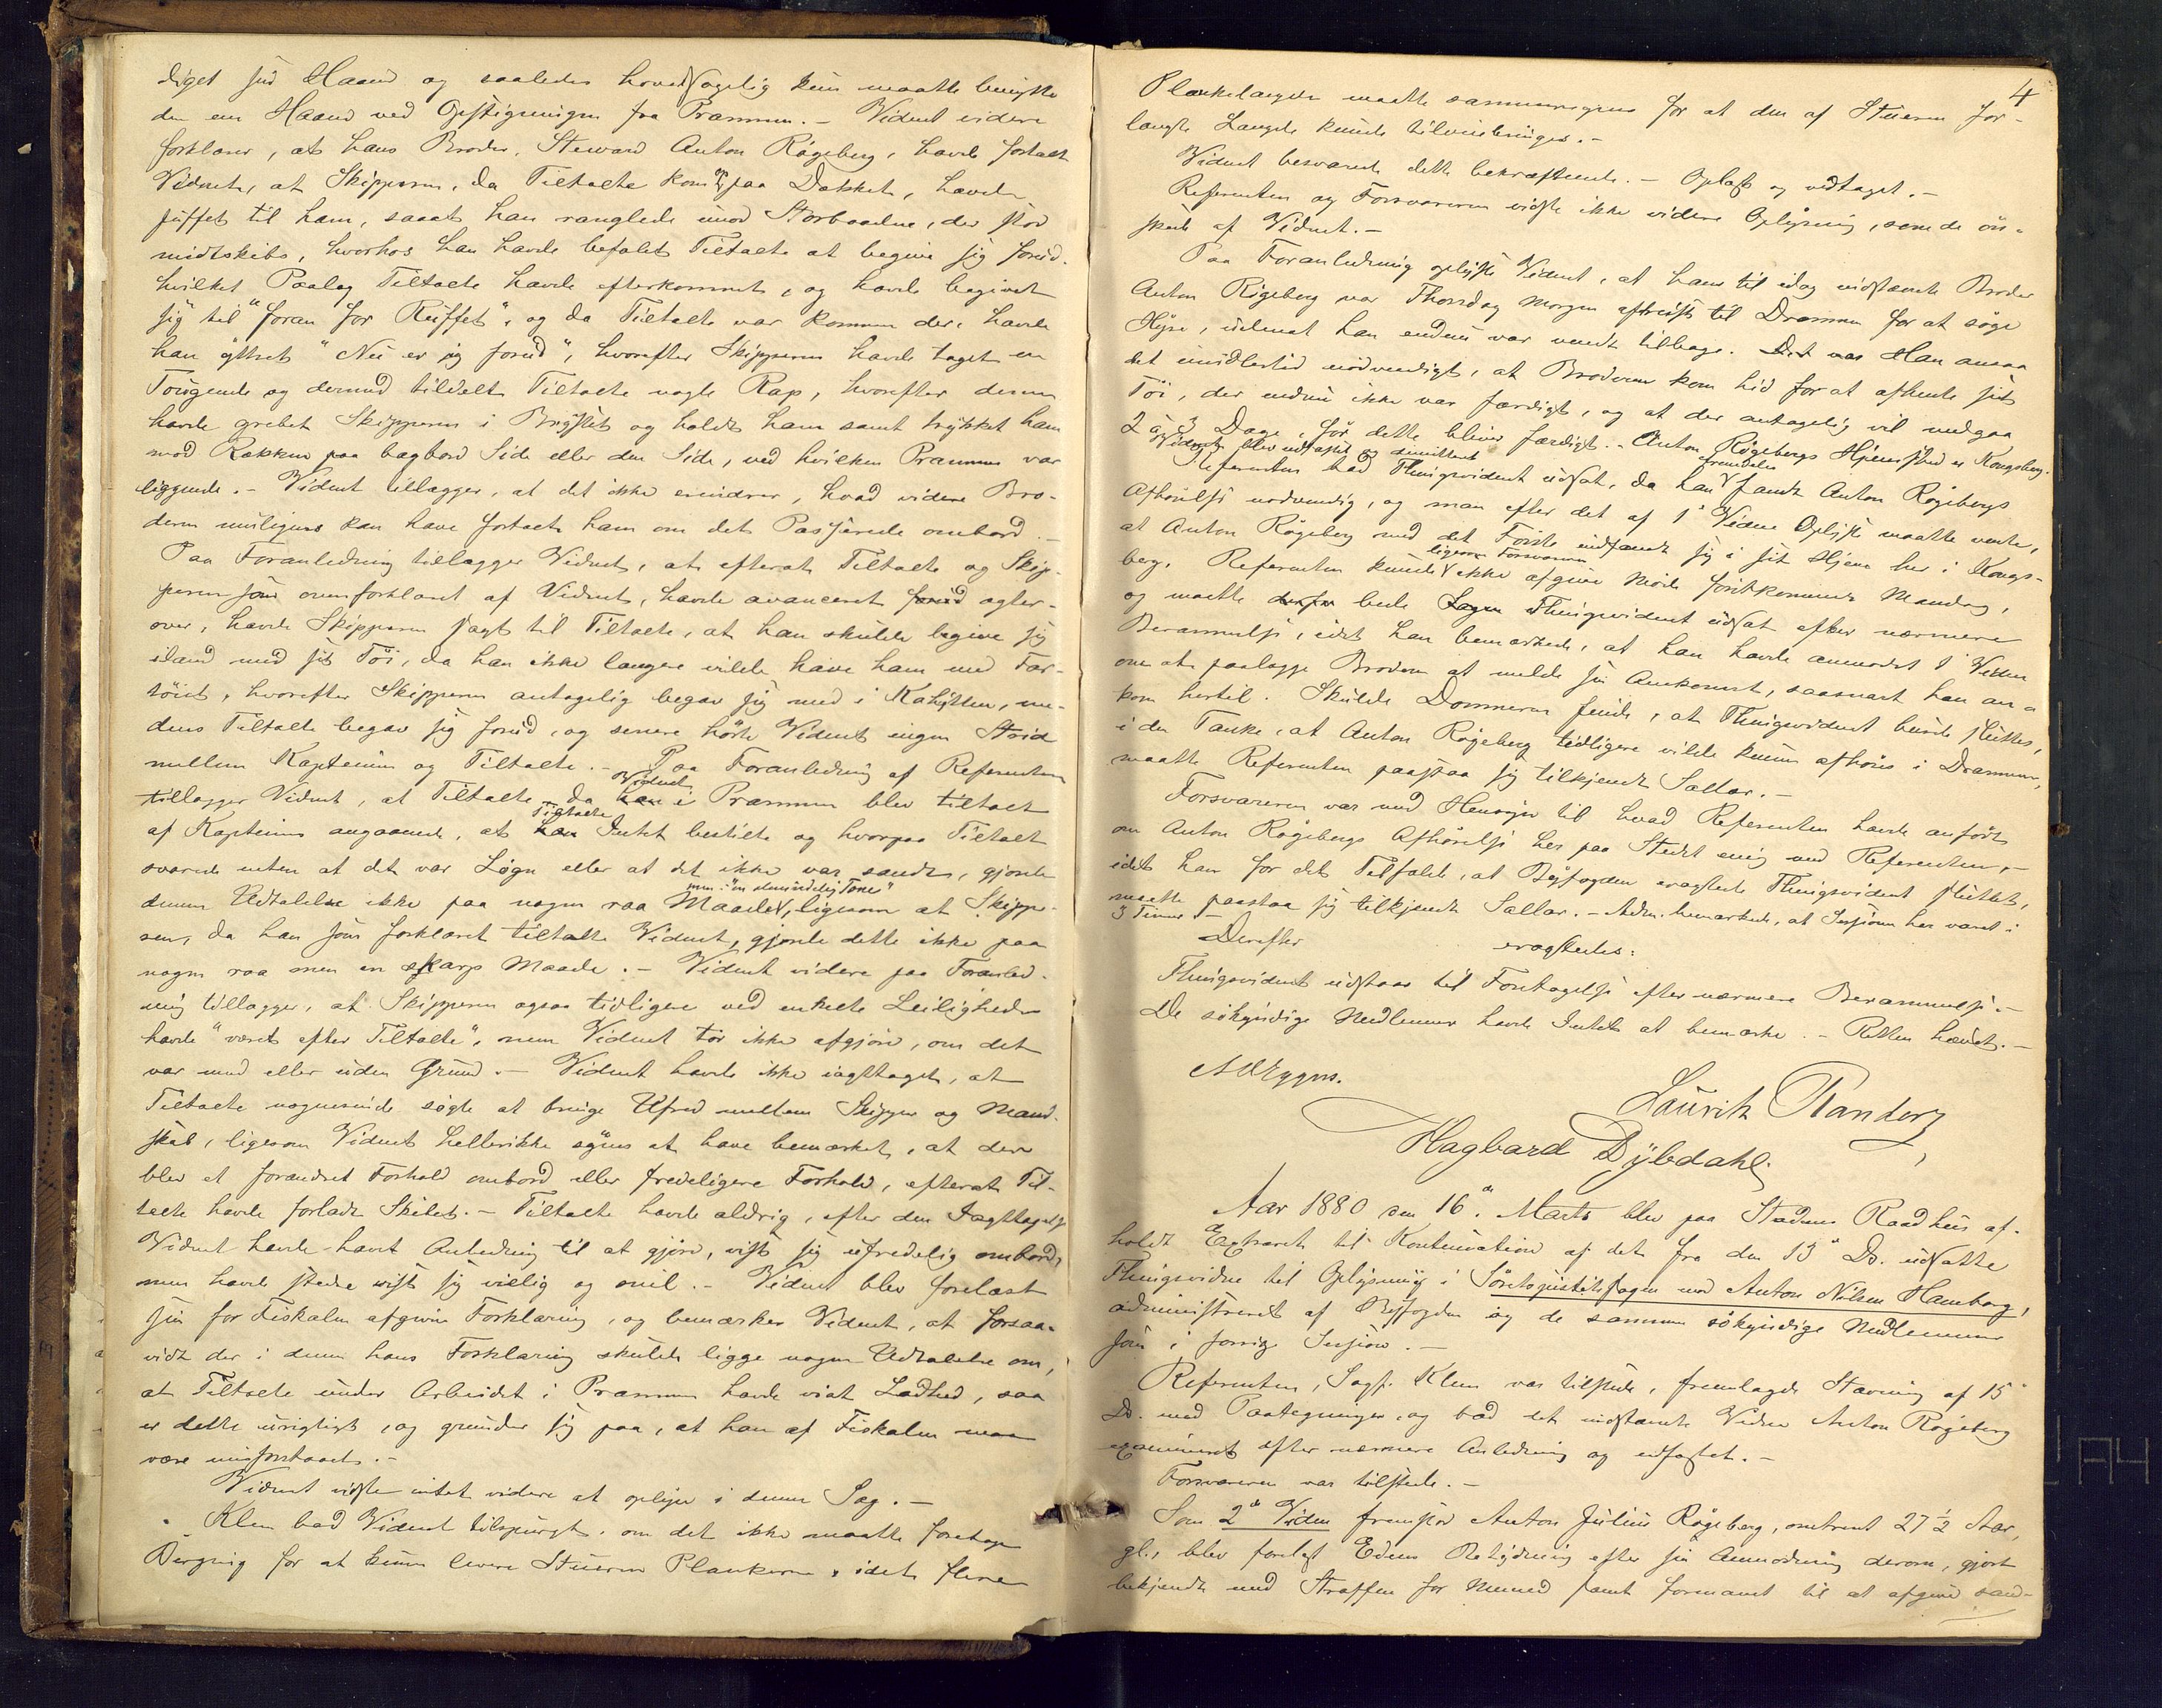 diget sin Haand og saaledes hovedsagelig kun maatte benytte
den ene Haand ved Opstigningen fra Prammen. – Vidnet videre
forklarer, at hans Broder, Steward Anton Rögeberg, havde fortalt
Vidnet, at Skipperen, da Tiltalte kom op paa Dækket, havde
puffet til ham, saaat han ranglede imod Storbaadene, der stod
midtskibs, hvorhos han havde befalet Tiltalte at begive sig forud.
hvilket Paalæg Tiltalte havde efterkommet, og havde begivet
sig til "foran for Ruffet", og da Tiltalte var kommen der, havde
han yttret "Nu er jeg forud", hvorefter Skipperen havde taget en
Tougende og dermed tildelt Tiltalte nogle Rap, hvorefter denne
havde grebet Skipperen i Brystet og holdt ham samt trykket ham
mod Rækken paa bagbord Side eller den Side, ved hvilken Prammen var
liggende. – Vidnet tillægger, at det ikke erindrer, hvad videre Bro-
deren muligens kan have fortalt ham om det Passerede ombord. –
Paa Foranledning tillægger Vidnet, at efterat Tiltalte og Skip-
peren som ovenforklaret af Vidnet, havde avanceret forud agter-
over, havde Skipperen sagt til Tiltalte, at han skulde begive sig
iland med sit Töi, da han ikke længere vilde have ham med Far-
töiet, hvorefter Skipperen antagelig begav sig ned i Kahytten, me-
dens Tiltalte begav sig forud, og senere hörte Vidnet ingen Strid
mellem Kapteinen og Tiltalte. – Paa Foranledning af Referenten
tillægger Vidnet, at Tiltalte, da han Vidnet i Prammen blev tiltalt
af Kapteinen angaaende, at han Tiltalte Intet bestilte og hvorpaa Tiltalt
svarede enten at det var Lögn eller at det ikke var sandt, gjorde
denne Udtalelse ikke paa nogen raa Maade men i "en almindelig Tone", ligesom at Skippe-
ren, da han som forklaret tiltalte Vidnet, gjorde dette ikke paa
nogen raa men en skarp Maade. – Vidnet videre paa Foranled-
ning tillægger, at Skipperen ogsaa tidligere ved enkelte Leiligheder
havde "været efter Tiltalte", men Vidnet tör ikke afgjöre, om det
var med eller uden Grund. – Vidnet havde ikke iagttaget, at
Tiltalte nogensinde sögte at bringe Ufred mellem Skipper og Mand-
skab, ligesom Vidnet hellerikke synes at have bemærket, at der
blev et forandret Forhold ombord eller fredeligere Forhold, efterat Til-
talte havde forladt Skibet. – Tiltalte havde aldrig, efter den Iagttagelse
Vidnet havde havt Anledning til at gjöre, vist sig ufredelig ombord,
men havde stedse vist sig villig og snil. – Vidnet blev forelæst
sin for Fiskalen afgivne Forklaring, og bemærker Vidnet, at forsaa-
vidt der i denne hans Forklaring skulde ligge nogen Udtalelse om,
at Tiltalte under Arbeidet i Prammen havde vist Ladhed, saa
er dette urigtigt, og grunder sig paa, at han af Fiskalen maa
være misforstaaet. –
Vidnet vidste intet videre at oplyse i denne Sag. –
Klem bad Vidnet tilspurgt, om det ikke maatte foretages
Bergning for at kunne levere Stueren Plankerne, idet flere
4
Plankelængder maatte sammenregnes for at den af Stueren for-
langte Længde kunde tilveiebringes. –
Vidnet besvarede dette bekræftende. – Oplæst og vedtaget. –
Referenten og Forsvareren vidste ikke videre Oplysning, som de ön-
skede af Vidnet. –
Paa Foranledning oplyste Vidnet, at hans til idag indstævnte Broder
Anton Rögeberg var Thorsdag Morgen afreist til Drammen for at söge
Hyre, uden at han endnu var vendt tilbage. Det var Han ansaa
det imidlertid nödvendigt, at Broderen kom hid for at afhente sit
Töi, der endnu ikke var færdigt, og at der antagelig vil medgaa
2 à 3 Dage, för dette bliver færdigt. – Anton Rögebergs Hjemsted er Kongsberg.
Vidnet blev udfæstet og demitteret
Referenten bad Thingsvidnet udsat, da han fremdeles fandt Anton Rögebergs
Afhörelse nödvendig, og man efter det af 1' Vidne Oplyste maatte vente,
at Anton Rögeberg med det Förste indfandt sig i sit Hjem her i Kongs-
berg. Referenten kunde ligesom Forsvareren ikke afgive Möde förstkommende Mandag,
og maatte derfor bede Sagen Thingsvidnet udsat efter nærmere
Berammelse, idet han bemærkede, at han havde anmodet 1' Vidne
om at paalægge Broderen at melde sin Ankomst, saasnart han an-
kom hertil. Skulde Dommeren finde, at Thingsvidnet burde sluttes,
i den Tanke, at Anton Rögeberg tidligere vilde kunne afhöres i Drammen,
maatte Referenten paastaa sig tilkjendt Sallar. –
Forsvareren var med Hensyn til hvad Referenten havde anfört
om Anton Rögebergs Afhörelse her paa Stedet enig med Referenten, –
idet han for det Tilfælde, at Byfogden eragtede Thingsvidnet sluttet,
maatte paastaa sig tilkjendt Sallar. – Adm. bemærkede, at Sessionen har varet i
3 Timer. –
Derefter eragtedes:
Thingsvidnet udstaar til Foretagelse efter nærmere Berammelse. –
De sökyndige Medlemmer havde Intet at bemærke. – Retten hævet. –
Lauritz Randers
Hagbard Dybdahl.
Aar 1880 den 16de Marts blev paa Stadens Raadhus af-
holdt Extraret til Kontinuation af det fra den 13de Ds. udsatte
Thingsvidne til Oplysning i Söretsjustitssagen mod Anton Nilsen Hamborg,
administreret af Byfogden og de samme sökyndige Medlemmer
som i forrige Session. –
Referenten, Sagf. Klem var tilstede, fremlagde Stævning af 15'
Ds. med Paategninger, og bad det indstævnte Vidne Anton Rögeberg
examineret efter nærmere Anledning og udfæstet. –
Forsvareren var tilstede. –
Som 2det Vidne fremstod Anton Julius Rögeberg, omtrent 27 1/2 Aar
gl., blev forelæst Edens Betydning efter sin Anmodning derom, gjort
bekjendt med Straffen for Meened samt formanet til at afgive sand-